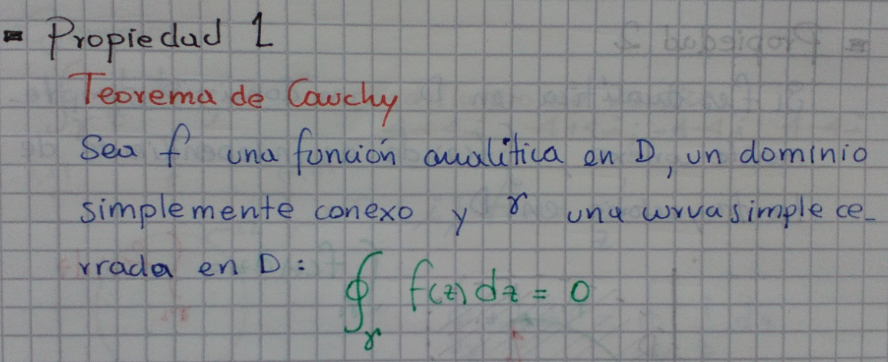 = Propiedad 1
Teorema de Cauchy
Sea f una función analítica en D, un dominio
simplemente conexo y γ una curva simple ce-
rrada en D:
∮_γ f(z) dz = 0